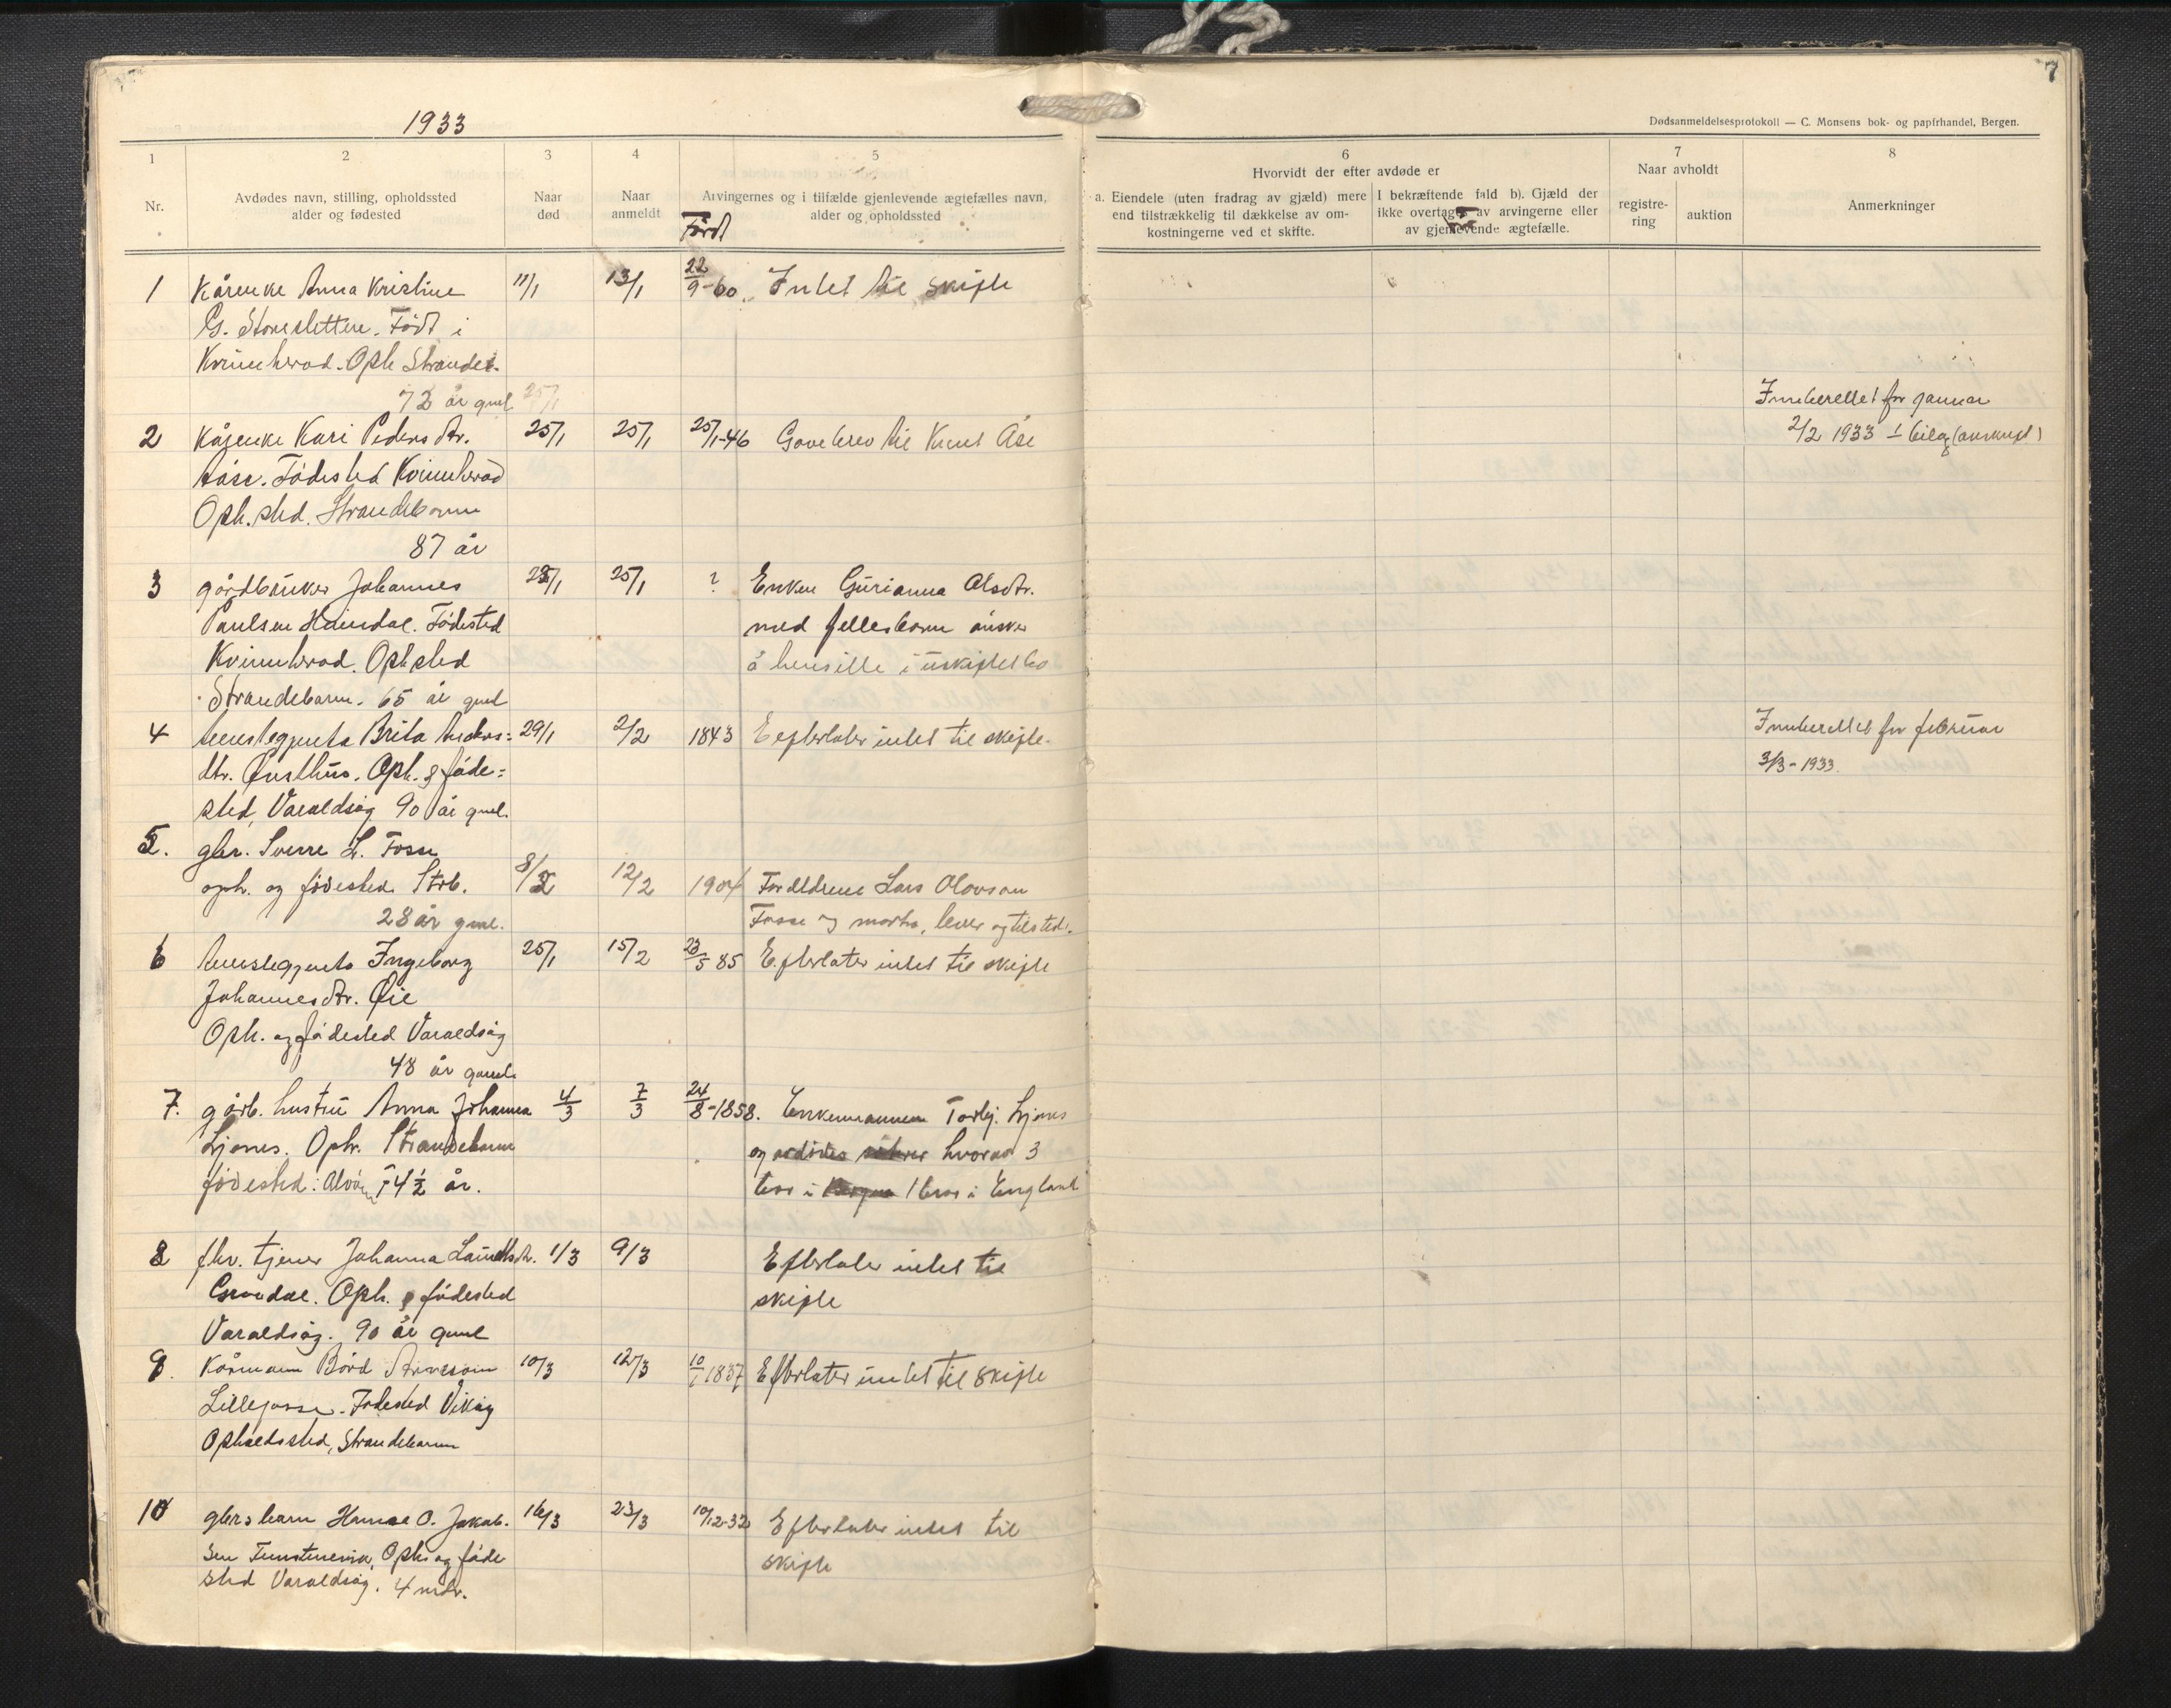 7
1933
Dødsanmeldelsesprotokoll — C. Monsens bok- og papirhandel, Bergen.
1
2
3
4
5
6
7
8
Nr.
Avdødes navn, stilling, opholdssted
alder og fødested
Naar
død
Naar
anmeldt
Arvingernes og i tilfælde gjenlevende ægtefælles navn,
alder og opholdssted
Født
Hvorvidt der efter avdøde er
a. Eiendele (uten fradrag av gjæld) mere
end tilstrækkelig til dækkelse av om-
kostningerne ved et skifte.
I bekræftende fald b). Gjæld der
ikke overtages av arvingerne eller
av gjenlevende ægtefælle.
Naar avholdt
registre-
ring
auktion
Anmerkninger
1 Kårenke Anna Kristine 11/1 13/1 22/9-60. Intet til skifte
G. Storesletten. Født i
Kvinnherad. Oph Strandeb.
72 år gml 25/1
Innberettet for januar
2 Kårenke Kari Pedersdtr. 25/1 25/1 25/1-46 Gavebrev til Knut Åse
2/2 1933 1 bilag
Åse. Fødested Kvinnherad
Oph.sted. Strandebarm
87 år
3 gårdbruker Johannes 23/1 25/1 ? Enken Gurianna Olsdtr.
Paulsen Heimdal. Fødested med fellesbarn ønsker
Kvinnherad. Oph sted å hensitte i uskiftet bo
Strandebarm. 65 år gml
4 Brita Anders= 29/1 2/2 1843 Efterlater intet til skifte.
Innberettet for februar
dtr. Øusthus. Oph. & føde=
3/3-1933.
sted, Varaldsøy 90 år gml.
5. gbr. Sverre L. Fosse
oph. og fødested Strb. 8/2 12/2 1904 Foreldrene Lars Olavson
28 år gml. Fosse og mor
6 Ingeborg 25/1 15/2 23/5 85 Efterlater intet til skifte
Johannesdtr. Øie
Oph. og fødested Varaldsøy
48 år gaml.
7. gårb. hustru Anna Johanna 4/3 7/3 24/8-1858. Enkemannen Torbj. Ljones
Ljones. Oph. Strandebarm og hvorav 3
fødested: 74 1/2 år. bor i 1 bor i England
8 fhv. tjener Johanna 1/3 9/3 Efterlater intet til
Oph. & fødested skifte
Varaldsøy. 90 år gml
9. Kårmann Bård 10/3 12/3 10/1 1837 Efterlater intet til skifte
Lillefosse. Fødested Vikøy
Opholdssted, Strandebarm
10 gbrs barn O. Jakob- 16/3 23/3 10/12-32 Efterlater intet til
sen Oph. og føde skifte
sted Varaldsøy. 4 mdr.